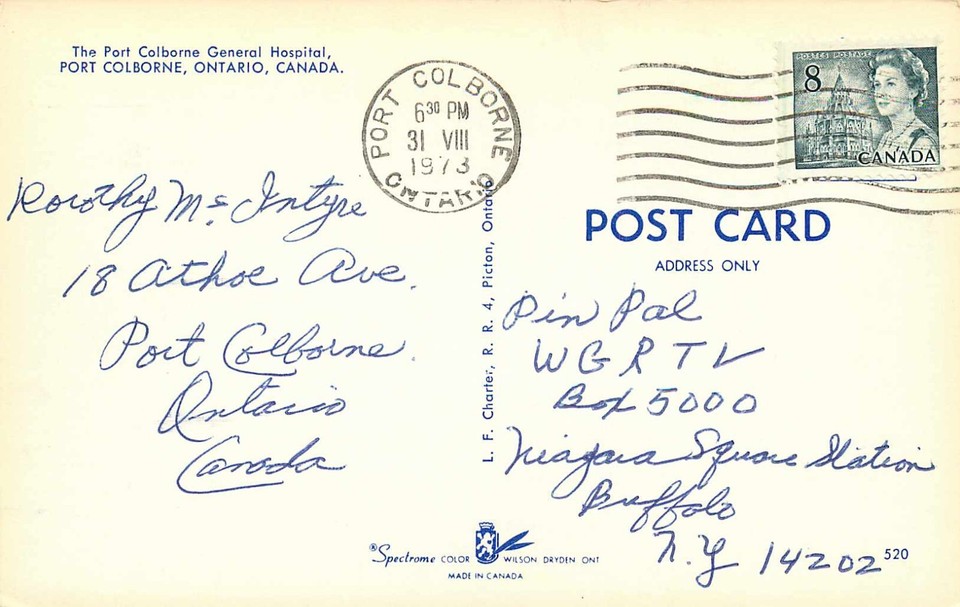 The Port Colborne General Hospital,
PORT COLBORNE, ONTARIO, CANADA.
PORT COLBORNE
6³⁰ PM
31 VIII
1973
ONTARIO
POSTES POSTAGE
8
CANADA
Dorothy Mc Intyre
18 Athoe Ave.
Port Colborne.
Ontario
Canada
L. F. Charter, R. R. 4, Picton, Ontario
POST CARD
ADDRESS ONLY
Pin Pal
WGR TV
Box 5000
Niagara Square Station
Buffalo
N.Y 14202
520
®Spectrome COLOR WILSON DRYDEN ONT
MADE IN CANADA